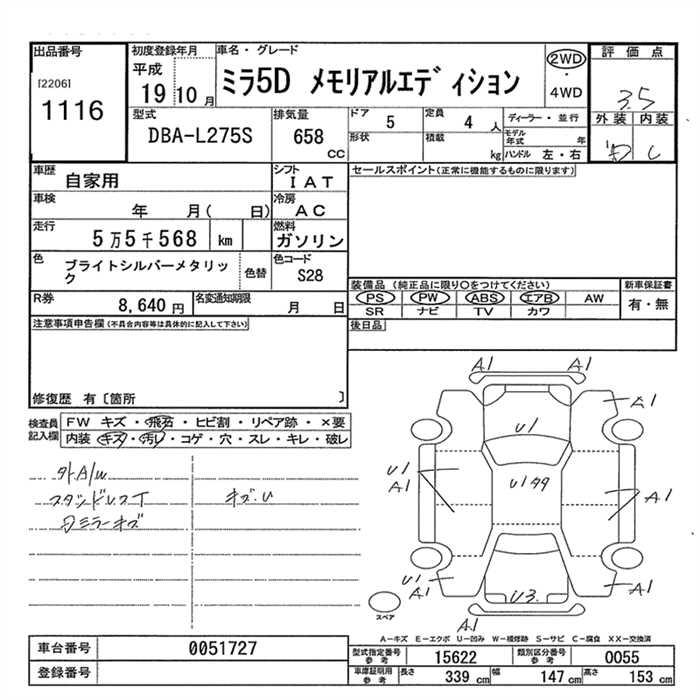 出品番号
[2206]
1116
初度登録年月
平成
19 10 月
車名・グレード
ミラ5D メモリアルエディション
2WD
・
4WD
評価点
3.5
外装 内装
型式
DBA-L275S
排気量
658
CC
ドア
5
定員
4 人
形状
積載
kg
ディーラー・並行
モデル
年式 年
ハンドル 左・右
車歴
自家用
シフト
IAT
車検
年 月( 日)
冷房
AC
走行
5万5千568 km
燃料
ガソリン
色
ブライトシルバーメタリッ
ク
色替
色コード
S28
R券
8,640 円
名変通知期限
月 日
セールスポイント(正常に機能するものに限ります)
装備品 (純正品に限り○をつけてください)
PS PW ABS エアB AW
SR ナビ TV カワ
新車保証書
有・無
後日品
注意事項申告欄(不具合内容等は具体的に記入して下さい)
修復歴 有〔箇所 〕
検査員
記入欄
FW キズ・飛石・ヒビ割・リペア跡・×要
内装 キズ・汚レ・コゲ・穴・スレ・キレ・破レ
外A/W
スタッドレスT
キズ・U
ミラーキズ
A1 A1
A1
U1
U1
A1
U199
A1
U1
A1
U3
A1
A1
スペア
A-キズ E-エクボ U-凹み W-補修跡 S-サビ C-腐食 XX-交換済
車台番号
0051727
登録番号
型式指定番号
参考
15622
類別区分番号
参考
0055
車庫証明用
参考
長さ 339 cm 幅 147 cm 高さ 153 cm